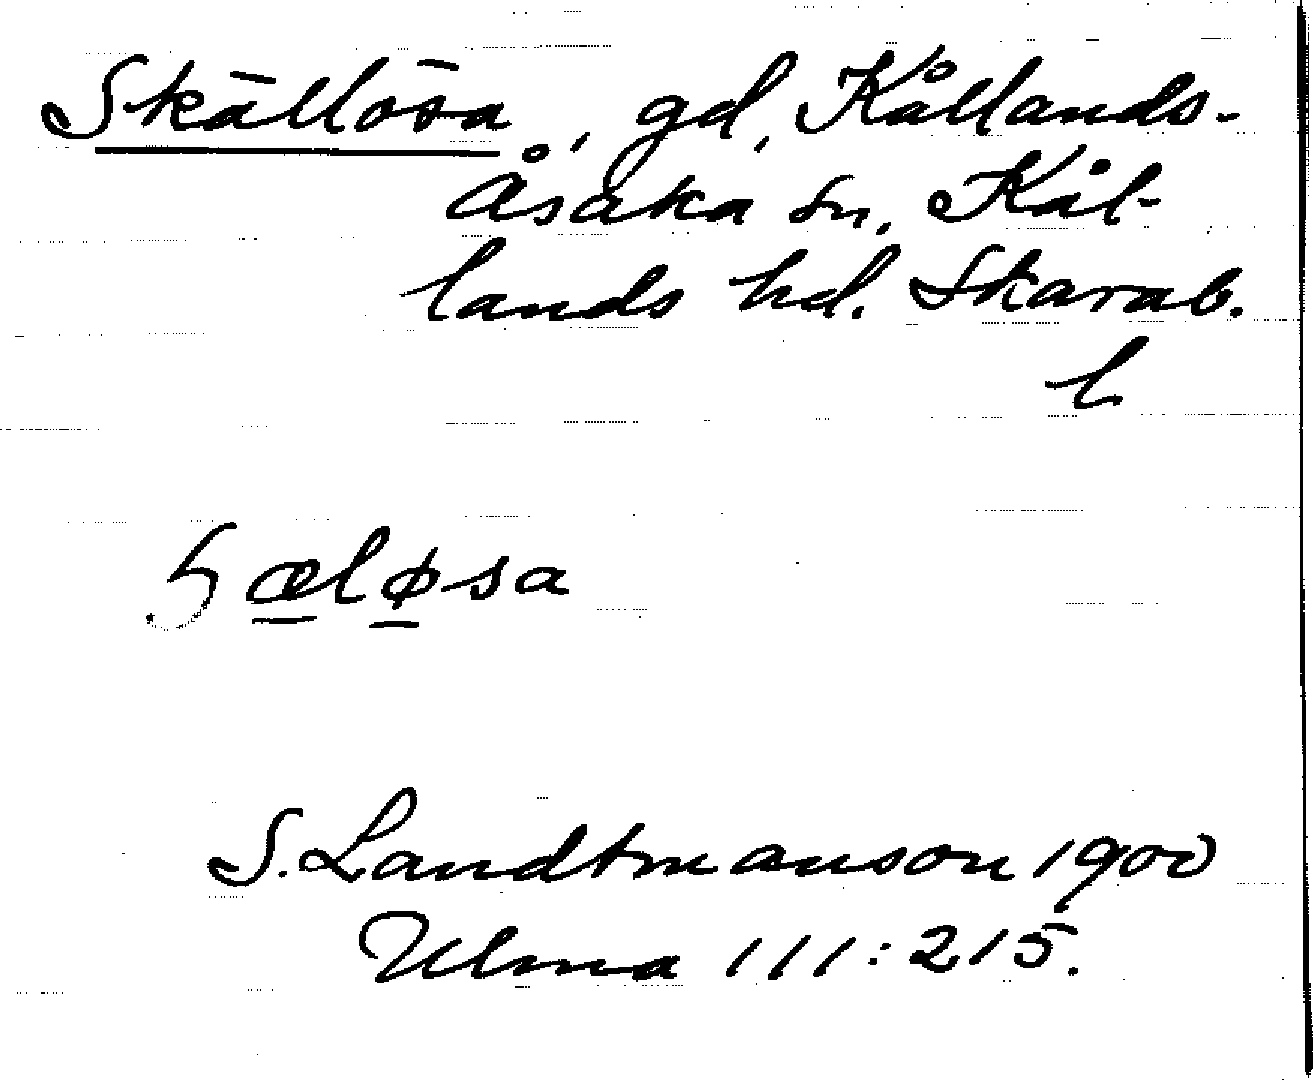 Skällösa, gd, Kållands-
Åsaka sn, Kål-
lands hd. Skarab.
l
ꞩæ̱lø̱sa
S. Landtmanson 1900
Ulma 111:215.